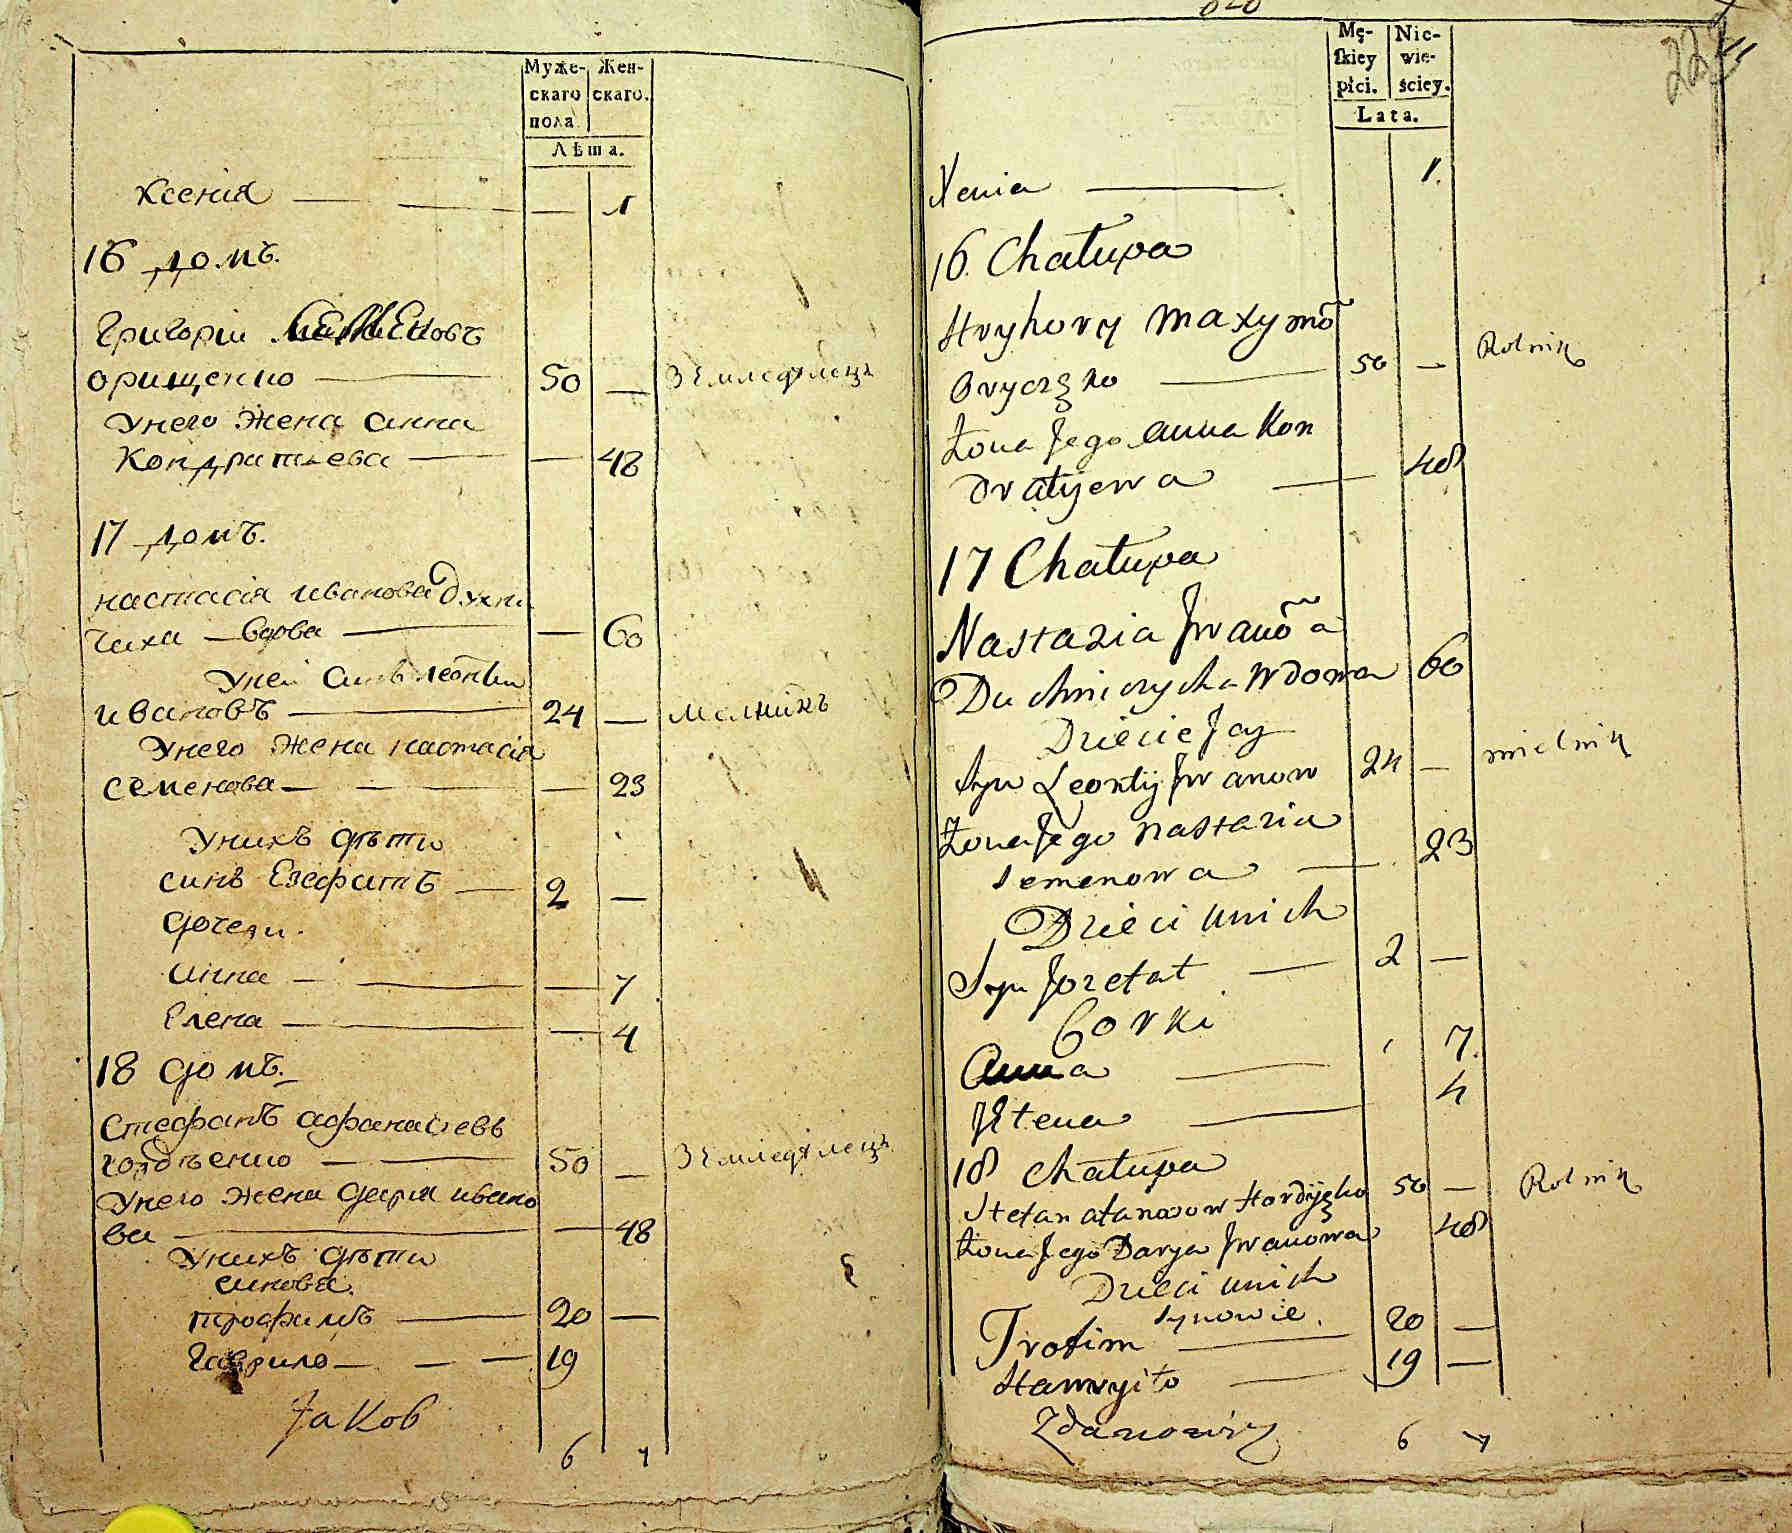 Муже-
скаго
пола
Жен-
скаго.
Лѣта.
Ксенія — — — 1
16 домъ.
Григорій
орищенко — 50 — Земледѣлецъ
Унего жена анна
Кондратьева — — 48
17 домъ.
настасія иванова Духни
чиха — вдова — — 60
Уней синъ леонтій
ивановъ — 24 — мелникъ
Унего жена настасія
семенова — — — 23
Унихъ дѣти
синъ Езефатъ — 2 —
дочери.
анна — — — 7
Елена — — — 4
18 домъ.
Стефанъ афанасіевъ
гордѣенко — — 50 — Земледѣлецъ
Унего жена дарія ивано
ва — — 48
Унихъ дѣти
синовя.
трофимъ — 20 —
Гаврило — — — 19
Jakob
6 7
Mę-
skiey
płci.
Nie-
wie-
ściey.
Lata.
Xenia — 1.
16. Chałupa
Hryhory Maxymō
Oryczęko — 50 — Rolnik
Żona Jego anna Kon
dratijewa — 48
17 Chałupa
Nastazia Jwanō a
Duchniczycha Wdowa 60
Dziecie Jey
Syn Leontij Jwanow 24 — mielnik
Żona Jego nastazia
Semenowa — 23
Dzieci unich
Syn Jozefat — 2 —
Corki
Anna — 7.
Jełena — 4
18 chałupa
Stefan afanasow Hordijęko 50 — Rolnik
Żona Jego Darya Jwanowa 48
Dzieci unich
Synowie.
Trofim — 20 —
Hawryiło — 19 —
Zdanowicz
6 7